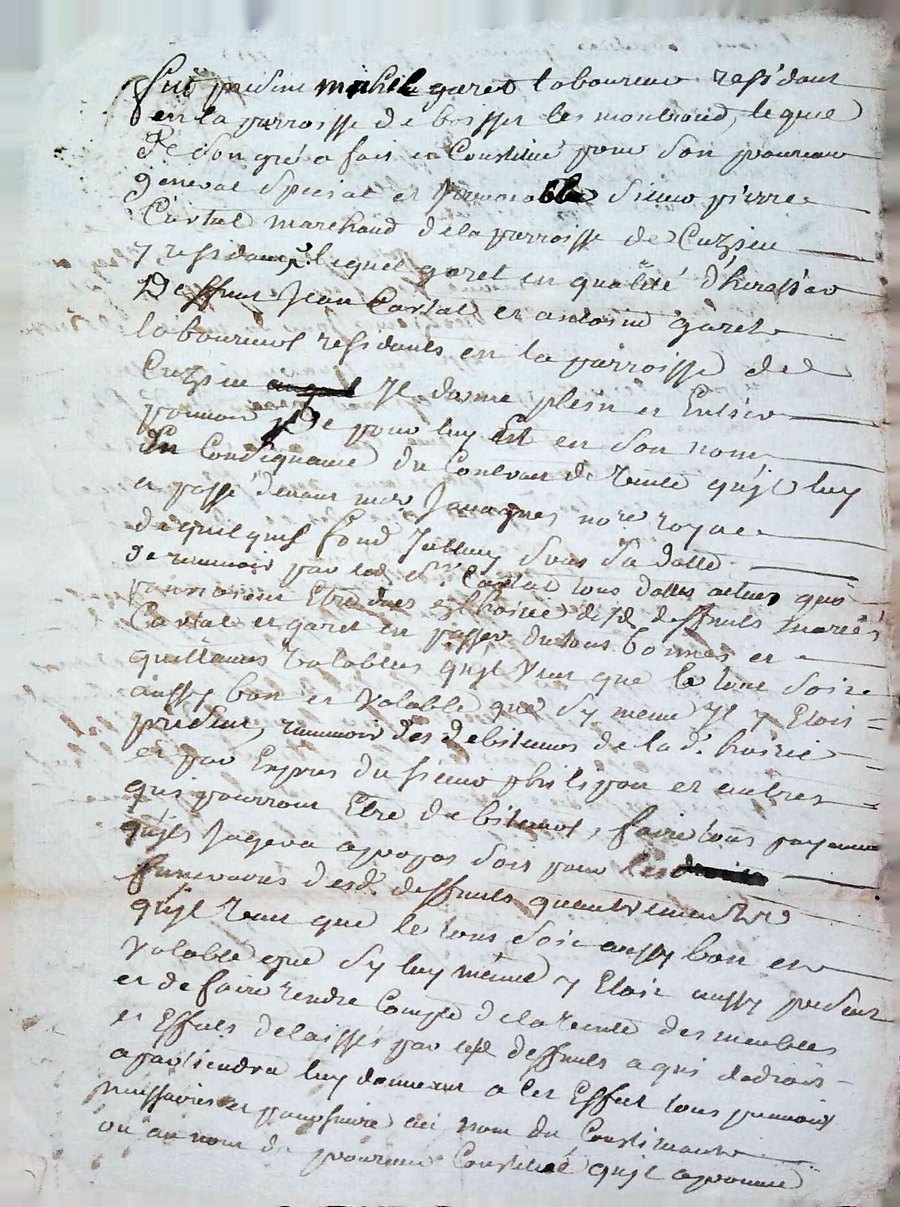 fut présent michel garet laboureur résidant
en la parroisse de boisset les montrond, lequel
De son gré a fait et Constitué pour son procureur
general special et sieur pierre
Cartal marchand de la parroisse de Cuzieu
y résidant lequel garet en qualité d'héritier
De deffunt Jean Cartal et antoine garet
laboureurs résidants en la parroisse de
Cuzieu Il donne plein et Entier
pouvoir de pour luy Et en son nom
En du Contrat de vente qu'il luy
et passé devant me no.re royal
de quelques fond
recevoir par led. s.r Cartal tous
pourroient Etre dues a l'hoirie desd. deffunts
Cartal et garet en passer du tous bonnes et
quittances Valables qu'il veut que le tout soit
aussy bon et Valable que sy meme Il y Etoit
présent, recevoir des debiteurs de la d. hoirie
et par Exprès du sieur philipon et autres
qui pourront Etre debiteurs, faire tous payements
qu'il Jugera apropos soit pour les
funeraires desd. deffunts qu'autrement
qu'il veut que le tous soit aussy bon et
Valable que sy luy même y Etoit aussy présent
et de faire rendre Compte de la vente des meubles
et Effets delaissés par lesd. deffunts a qui de droit
apartiendra luy donnant a cet Effet tous pouvoirs
necessaires et poursuivre au nom du Constituant
ou au nom du procureur Constitué qu'il approuve